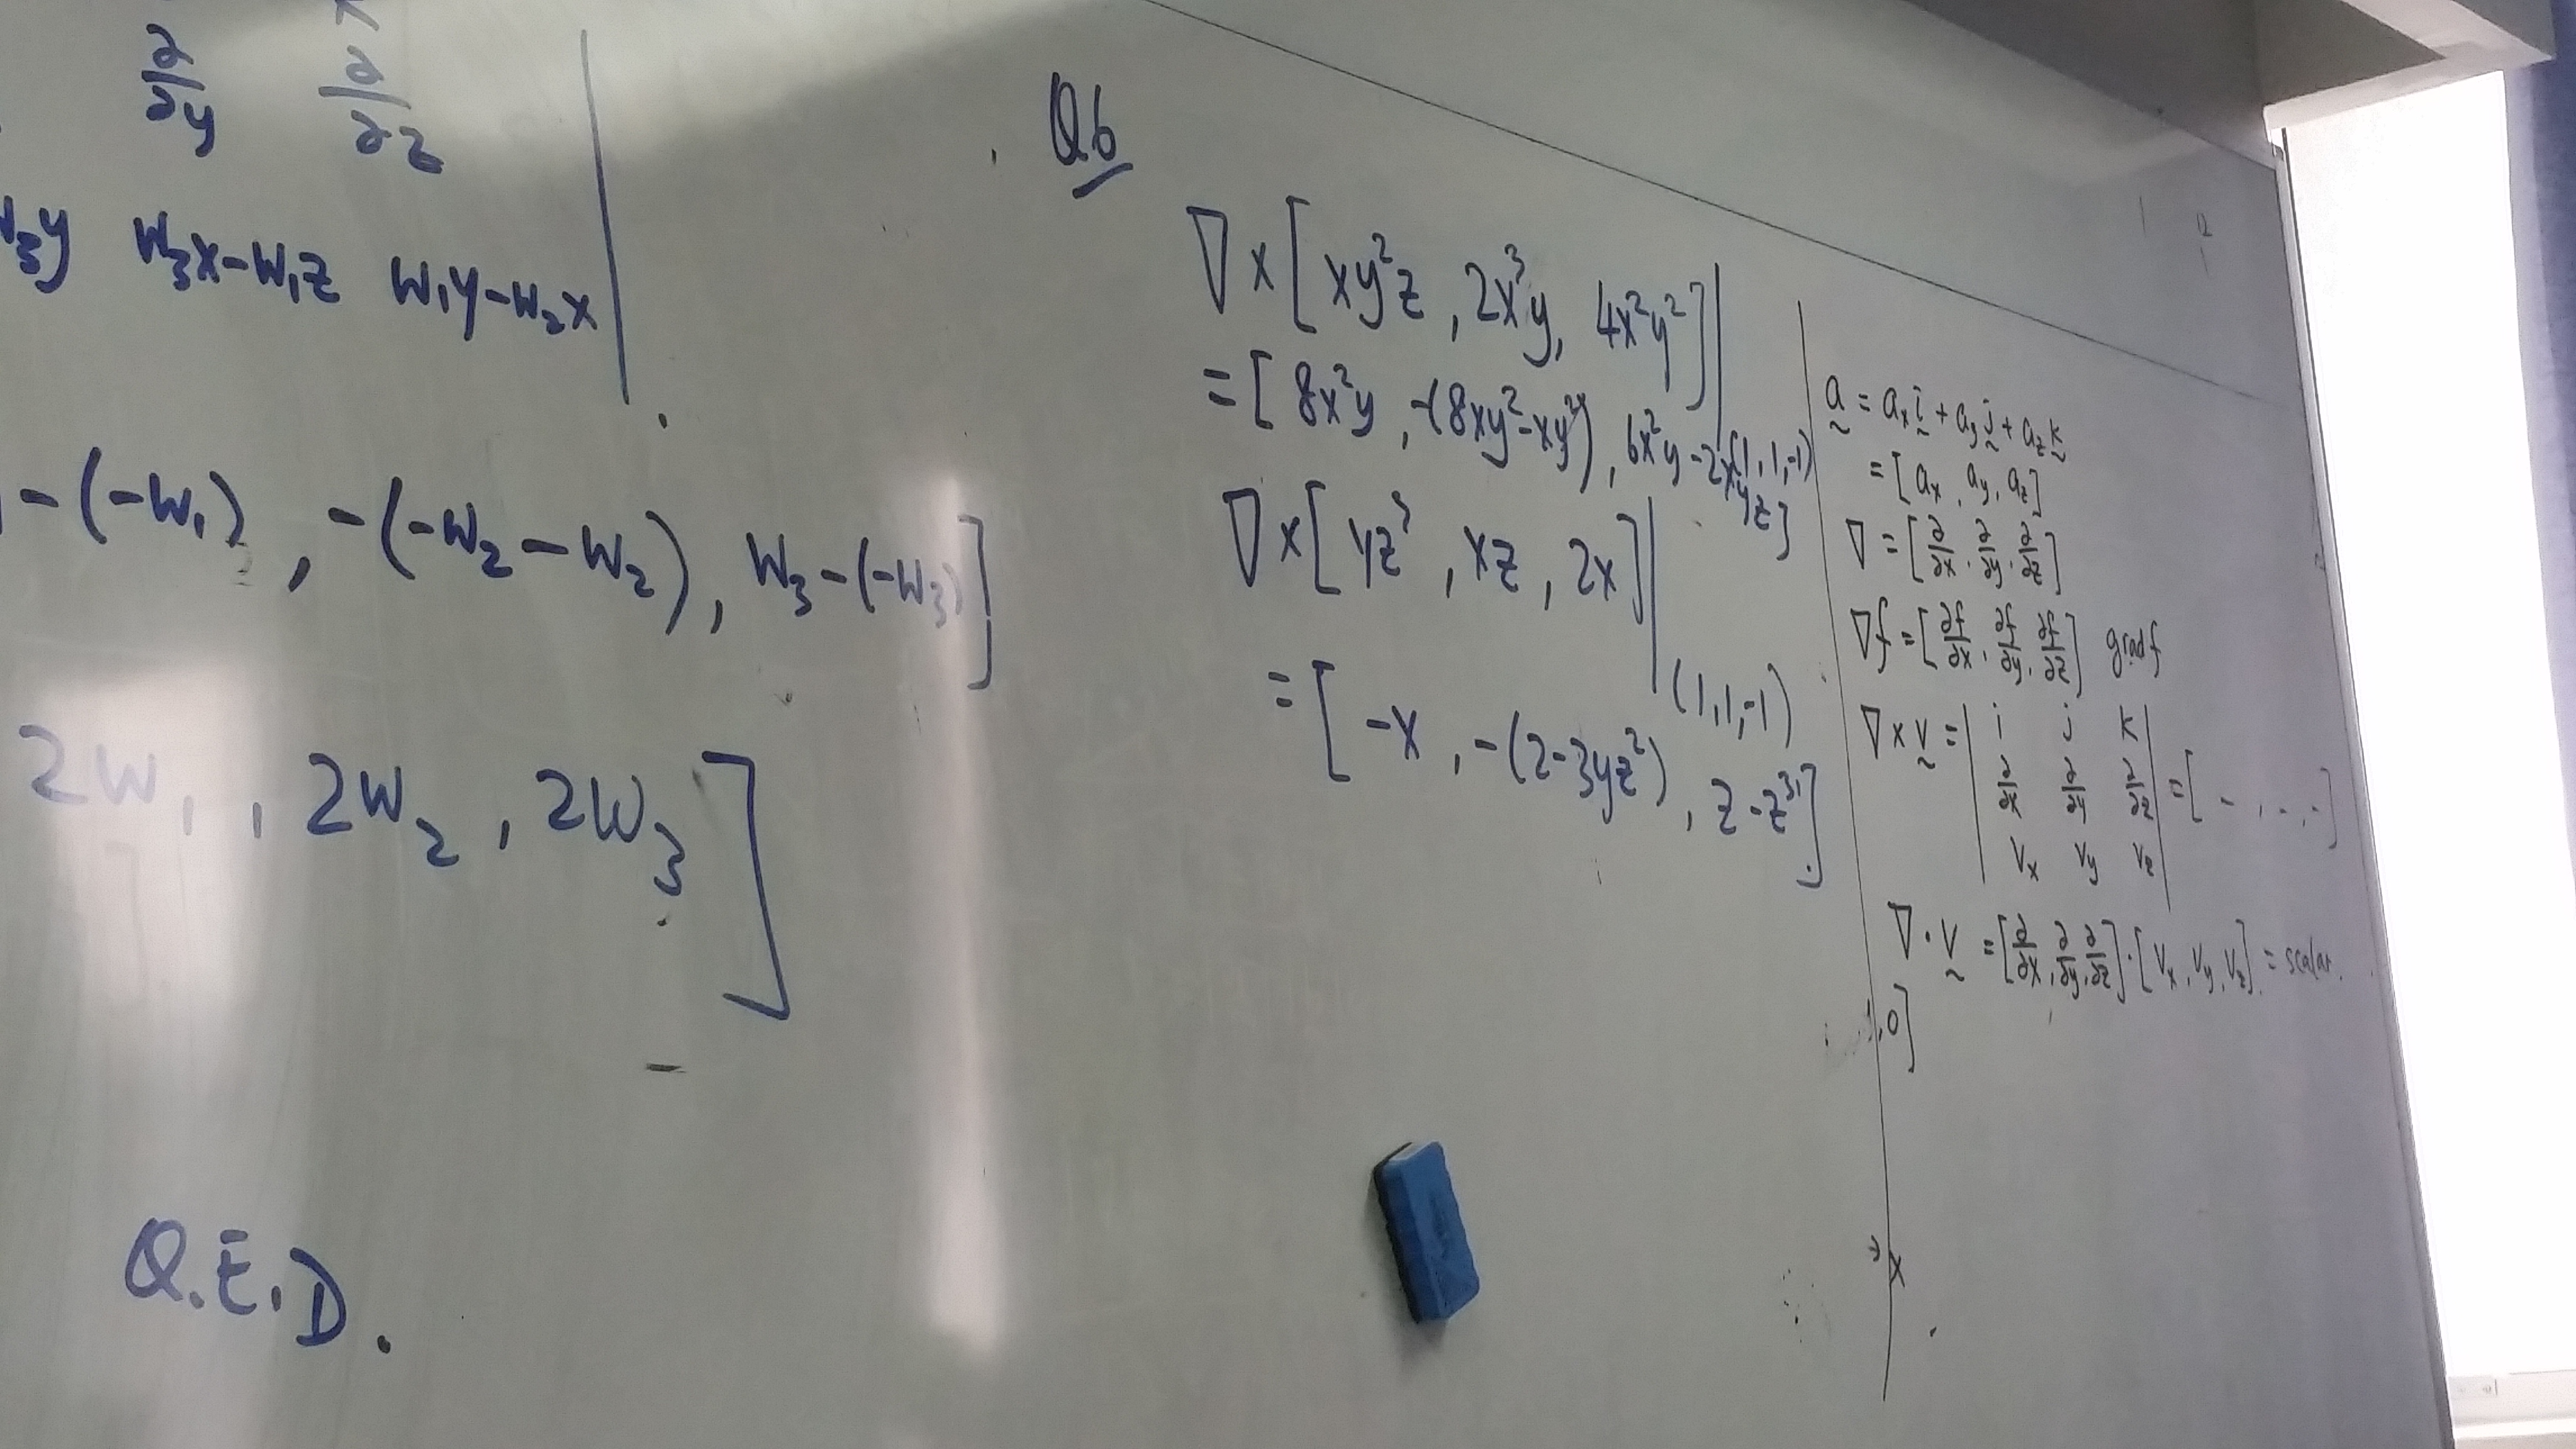 ∂/∂y ∂/∂z
w₃y w₃x-w₁z w₁y-w₂x
-(-w₁), -(-w₂-w₂), w₃-(-w₃)]
2w₁, 2w₂, 2w₃]
Q.E.D.
Q6
∇×[xy²z, 2x³y, 4x²y²]|
=[8x²y, -(8xy²-xy²), 6x²y-2xyz] (1,1,-1)
∇×[yz³, xz, 2x]|(1,1,-1)
=[-x, -(2-3yz²), z-z³]
a = aₓi + a_y j + a_z k
=[aₓ, a_y, a_z]
∇=[∂/∂x, ∂/∂y, ∂/∂z]
∇f=[∂f/∂x, ∂f/∂y, ∂f/∂z] grad f
∇×v=| i j k
∂/∂x ∂/∂y ∂/∂z
Vₓ V_y V_z | =[-, --, -]
∇·v =[∂/∂x, ∂/∂y, ∂/∂z]·[Vₓ, V_y, V_z] = scalar.
,0]
x